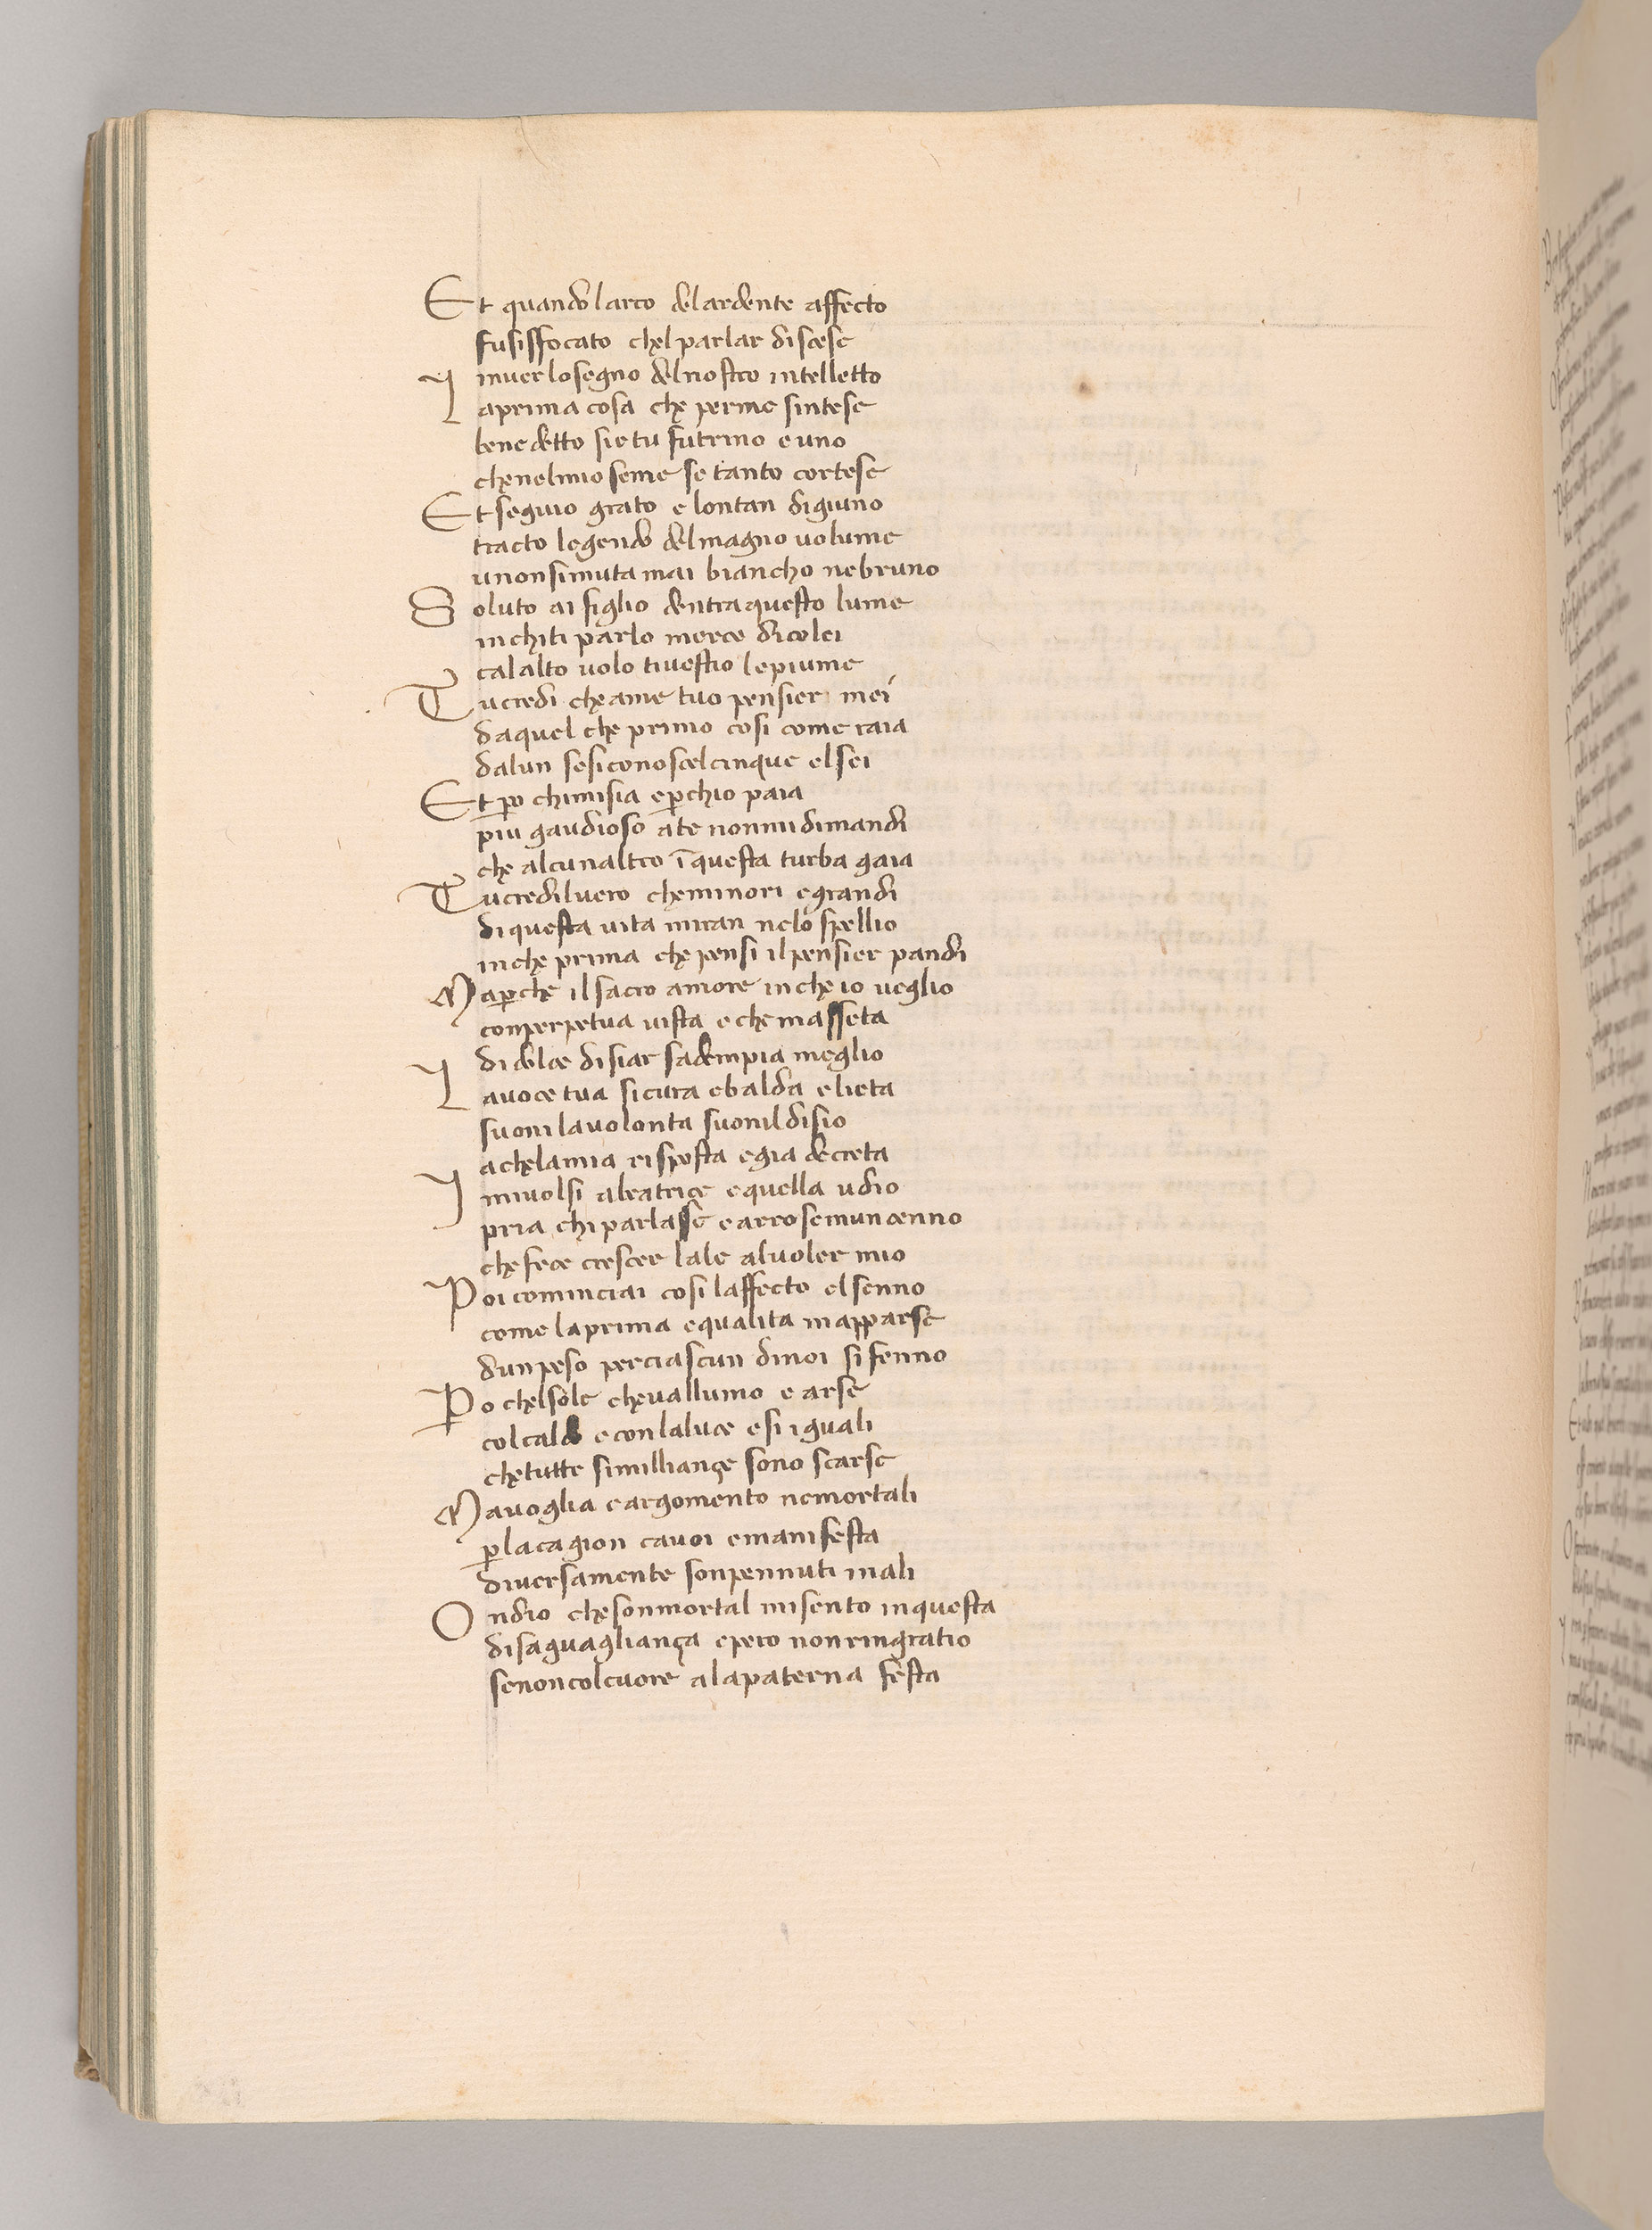 Et quando larco delardente affecto
fusisfocato chel parlar discese
inver losegno delnostro intelletto
Laprima cosa che perme sintese
benedetto sietu futrino e uno
chenelmio seme se tanto cortese
Et seguio grato e lontan digiuno
tracto legendo delmagno volume
unonsimuta mai biancho nebruno
Soluto ai figlio dentraquesto lume
inchiti parlo merce dicolei
calalto volo tivestio lepiume
Tucredi che ame tuo pensier mei
daquel che primo cosi come raia
dalun sesiconoscelcinque elsei
Et po chimisia epchio paia
piu gaudioso ate nonmidimandi
che alcunaltro ī questa turba gaia
Tucredilvero cheminori egrandi
diquesta vita miran nelo spellio
inche prima che pensi ilpensier pandi
Mapche ilsacro amore inche io veglio
conperpetua vista eche masseta
didolce disiar sadempia meglio
Lavoce tua sicura ebalda elieta
suoni lavolonta suonildisio
achelamia risposta egia decreta
Imivolsi abeatrice equella udio
pria chi parlasse earrosemuncenno
chefece crescer lale alvoler mio
Poi cominciai cosi laffecto elsenno
come laprima equalita mapparse
dunpeso perciascun dinoi sifenno
Po chelsole chevallumo e arse
colcaldo econlaluce esi iguali
chetutte similliançe sono scarse
Mavoglia eargomento nemortali
placagion cavoi emanifesta
diversamente sonpennuti inali
Ondio chesonmortal misento inquesta
disaguagliança epero nonringratio
senoncolcuore alapaterna festa